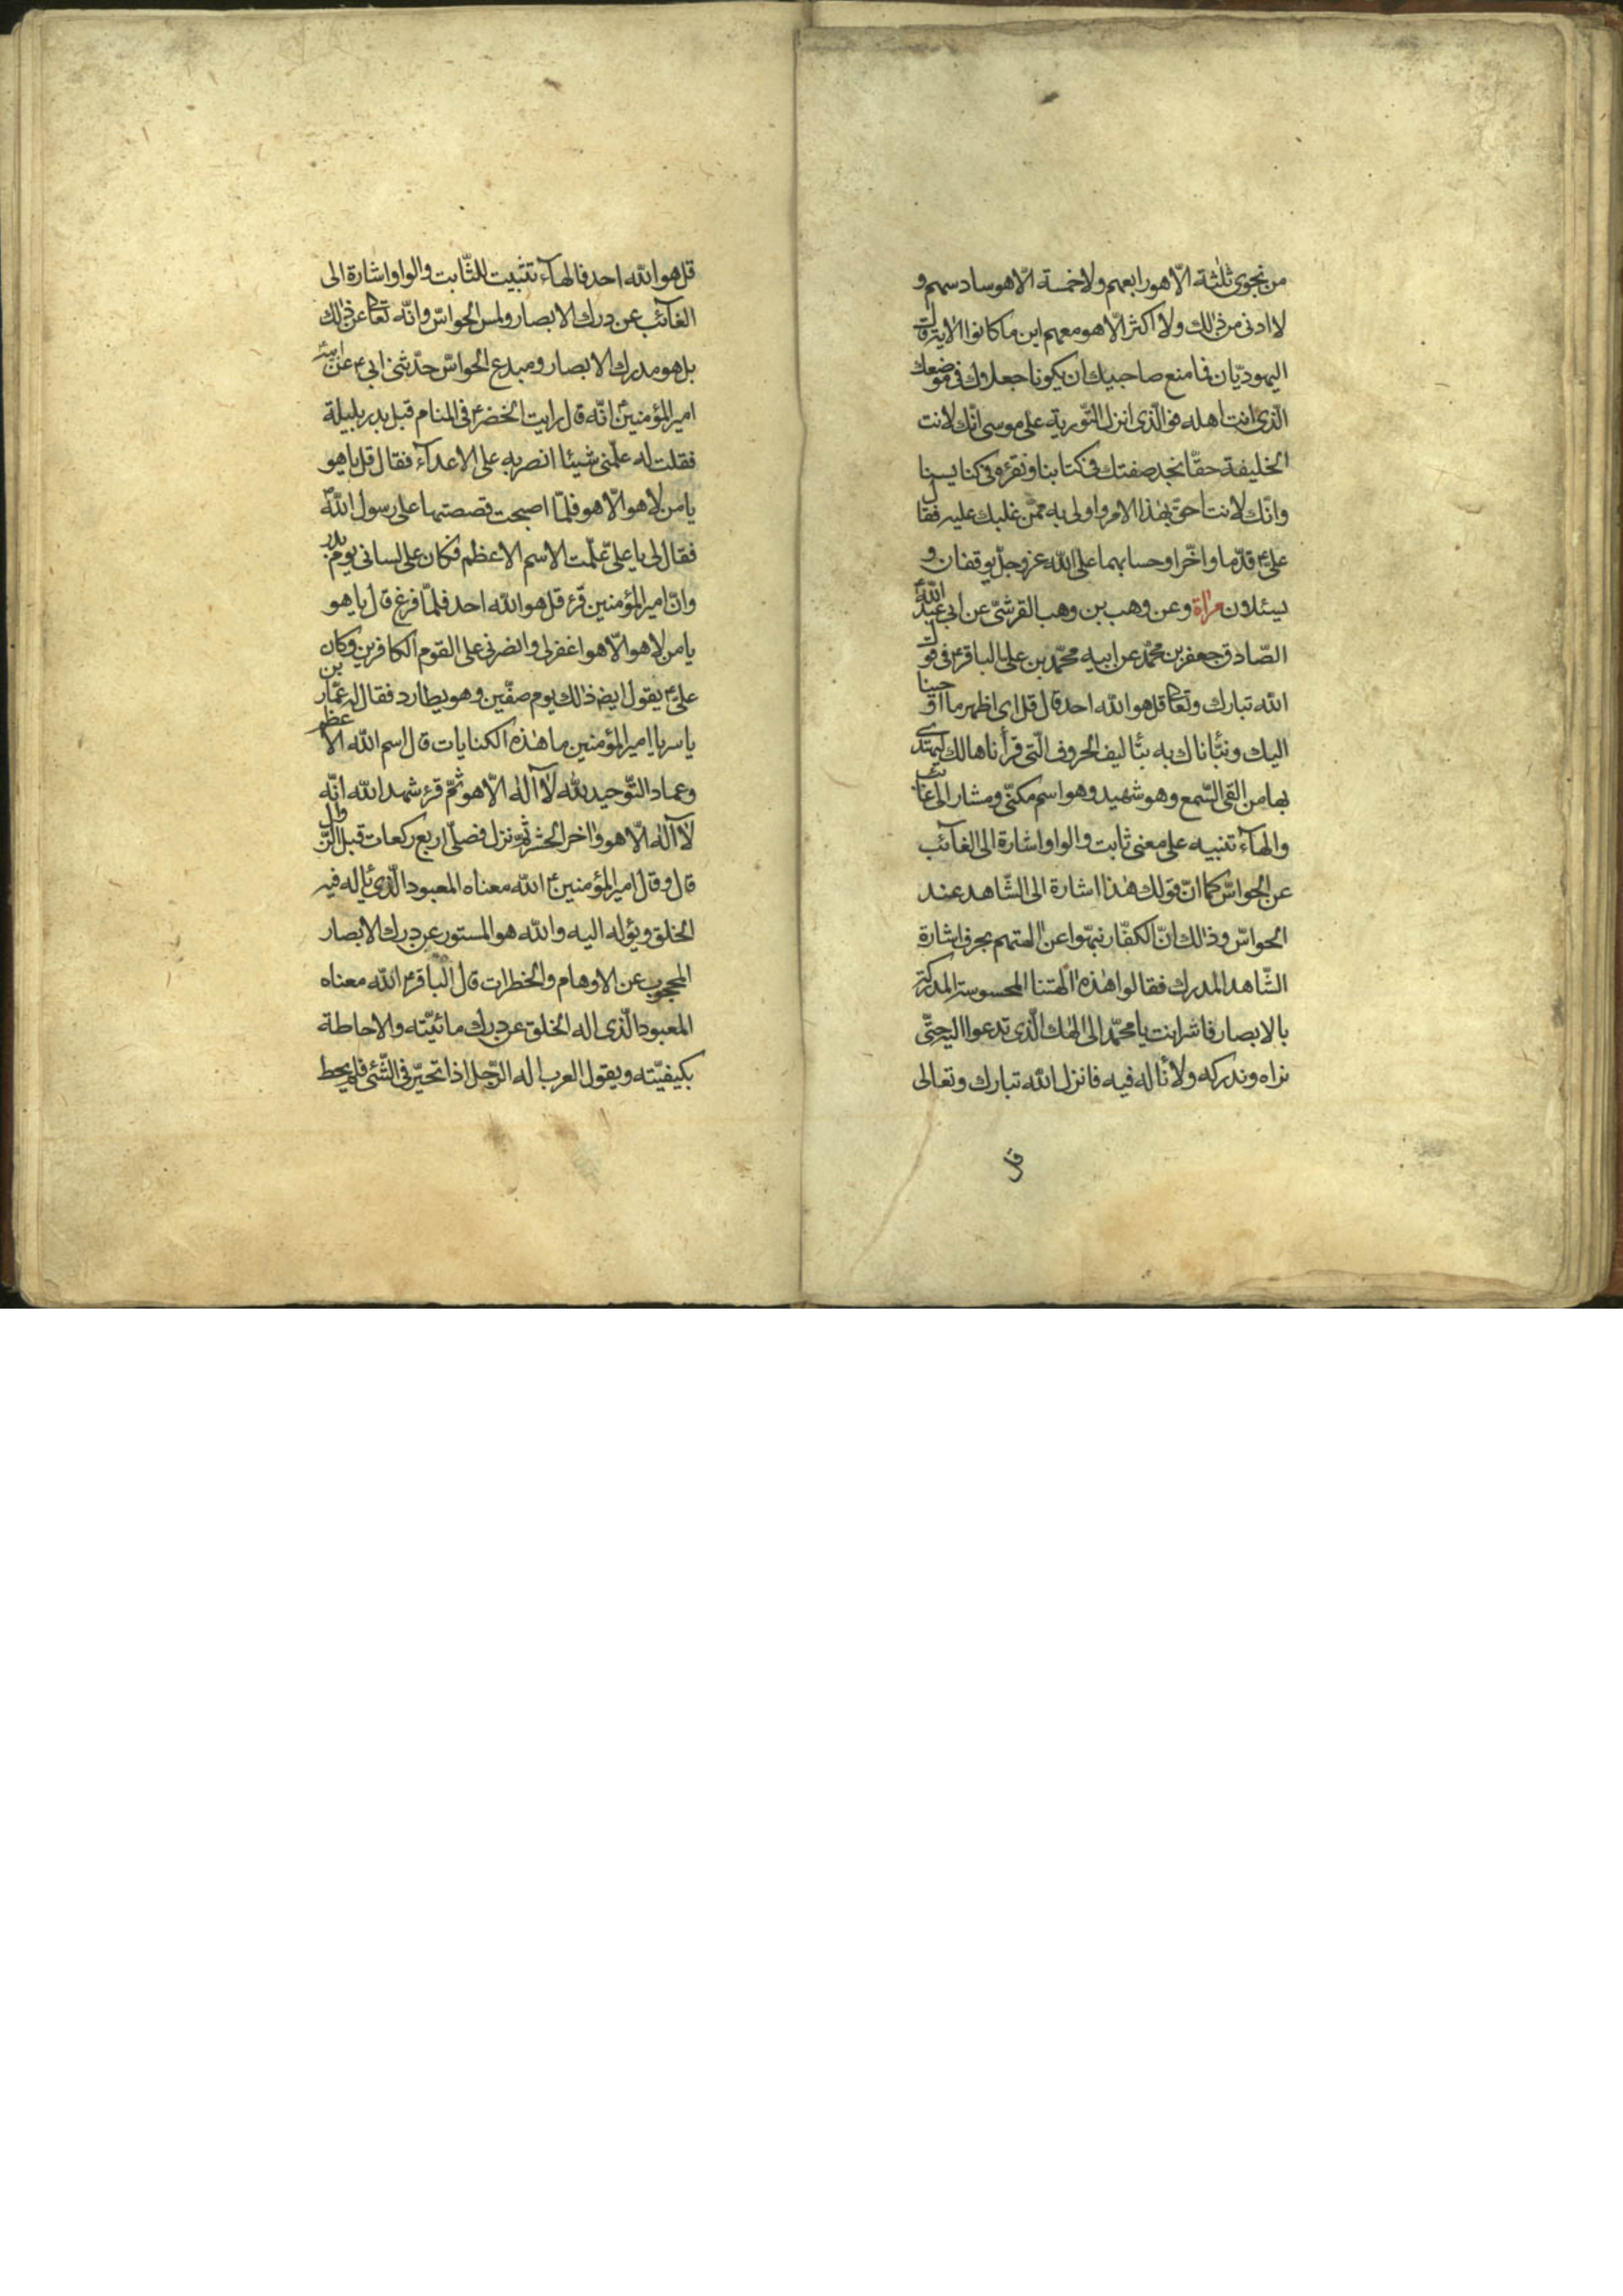 من نجوى ثلثة الّا هو رابعهم ولا خمسة الّا هو سادسهم و
لا ادنى من ذلك ولا اكثر الّا هو معهم اين ما كانوا الاية قال
اليهوديّان فما منع صاحبيك ان يكونا جعلوك فى موضعك
الّذى انت اهله فوالّذى انزل التّورية على موسى انّك لانت
الخليفة حقّا نجد صفتك فى كتابنا ونقرؤه فى كنايسنا
وانّك لانت احق بهذا الامر واولى به ممّن غلبك عليه فقال
علىّ ع قدّما واخّرا وحسابهما على الله عز وجلّ يوقفان و
يسئلان مراة وعن وهب بن وهب القرشىّ عن ابى عبد الله
الصّادق جعفر بن محمّد عن ابيه محمّد بن على الباقر ع فى قول
الله تبارك وتعا قل هو الله احد قال قل اى اظهر ما اوحينا
اليك ونبّأناك به بتأليف الحروف الّتى قرأناها لك ليهتدى
بها من القى السّمع وهو شهيد وهو اسم مكنّى ومشار الى غائب
والهآء تنبيه على معنى ثابت والواو اشارة الى الغآئب
عن الحواسّ كما انّ قولك هذا اشارة الى الشّاهد عند
الحواسّ وذلك انّ الكفّار نبهّوا عن الهتهم بحرف اشارة
الشّاهد المدرك فقالوا هذه الهتنا المحسوسة المدركة
بالابصار فاشر انت يا محمّد الى الهك الّذى تدعوا اليه حتّى
نراه وندركه ولا نأله فيه فانزل الله تبارك وتعالى
قل
قل هو الله احد فالهآء تثبيت للثّابت والواو اشارة الى
الغآئب عن درك الابصار ولمس الحواسّ وانّه تعا عن ذلك
بل هو مدرك الابصار ومبدع الحواسّ حدّثنى ابى ع عن ابيه
امير المؤمنين ع انّه قال رايت الخضر ع فى المنام قبل بدر بليلة
فقلت له علّمنى شيئا انصر به على الاعدآء فقال قل يا هو
يا من لا هو الّا هو فلمّا اصبحت قصصتها على رسول الله
فقال لى يا علىّ علّمت الاسم الاعظم فكان على لسانى يوم بدر
وانّ امير المؤمنين قرء قل هو الله احد فلمّا فرغ قال يا هو
يا من لا هو الّا هو اغفر لى وانصرنى على القوم الكافرين وكان
علىّ ع يقول ايض ذلك يوم صفّين وهو يطارد فقال له عمّار بن
ياسر يا امير المؤمنين ما هذه الكنايات قال اسم الله الاعظم
وعماد التّوحيد لله لا آله الّا هو ثمّ قرء شهد الله انّه
لا آله الّا هو واخر الحشر ثم نزل فصلّى اربع ركعات قبل الزّوال
قال وقال امير المؤمنين ع الله معناه المعبود الّذى يأله فيه
الخلق ويؤله اليه والله هو المستور عن درك الابصار
المحجوب عن الاوهام والخطرات قال الباقر ع الله معناه
المعبود الّذى اله الخلق عن درك مائيّته والاحاطة
بكيفيّته ويقول العرب اله الرّجل اذا تحيّر فى الشّئى فلم يحط